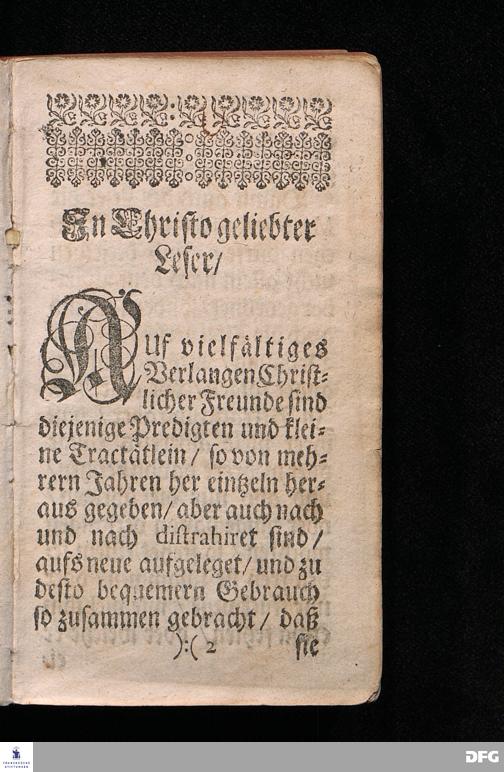 In Christo geliebter
Leser/
AUf vielfältiges
Verlangen Christ-
licher Freunde sind
diejenige Predigten und klei-
ne Tractätlein/ so von meh-
rern Jahren her eintzeln her-
aus gegeben/ aber auch nach
und nach distrahiret sind/
aufs neue aufgeleget/ und zu
desto bequemern Gebrauch
so zusammen gebracht/ daß
):( 2 sie
FRANCKESCHE
STIFTUNGEN
DFG